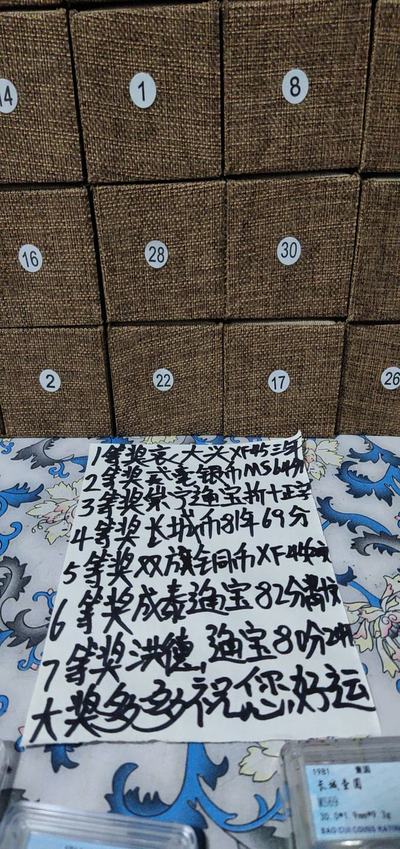 14 1 8
16 28 30
2 22 17 26
1等奖 大头XF45三年
2等奖 毫银币MS64分
3等奖崇宁通宝折十正字
4等奖长城币81年69分
5等奖双旗铜币XF45
6等奖咸泰通宝82分
7等奖洪德通宝80分
大奖多多祝您好运
1981 壹圆
长城壹圆
MS69
30.0*1.9mm*9.3g